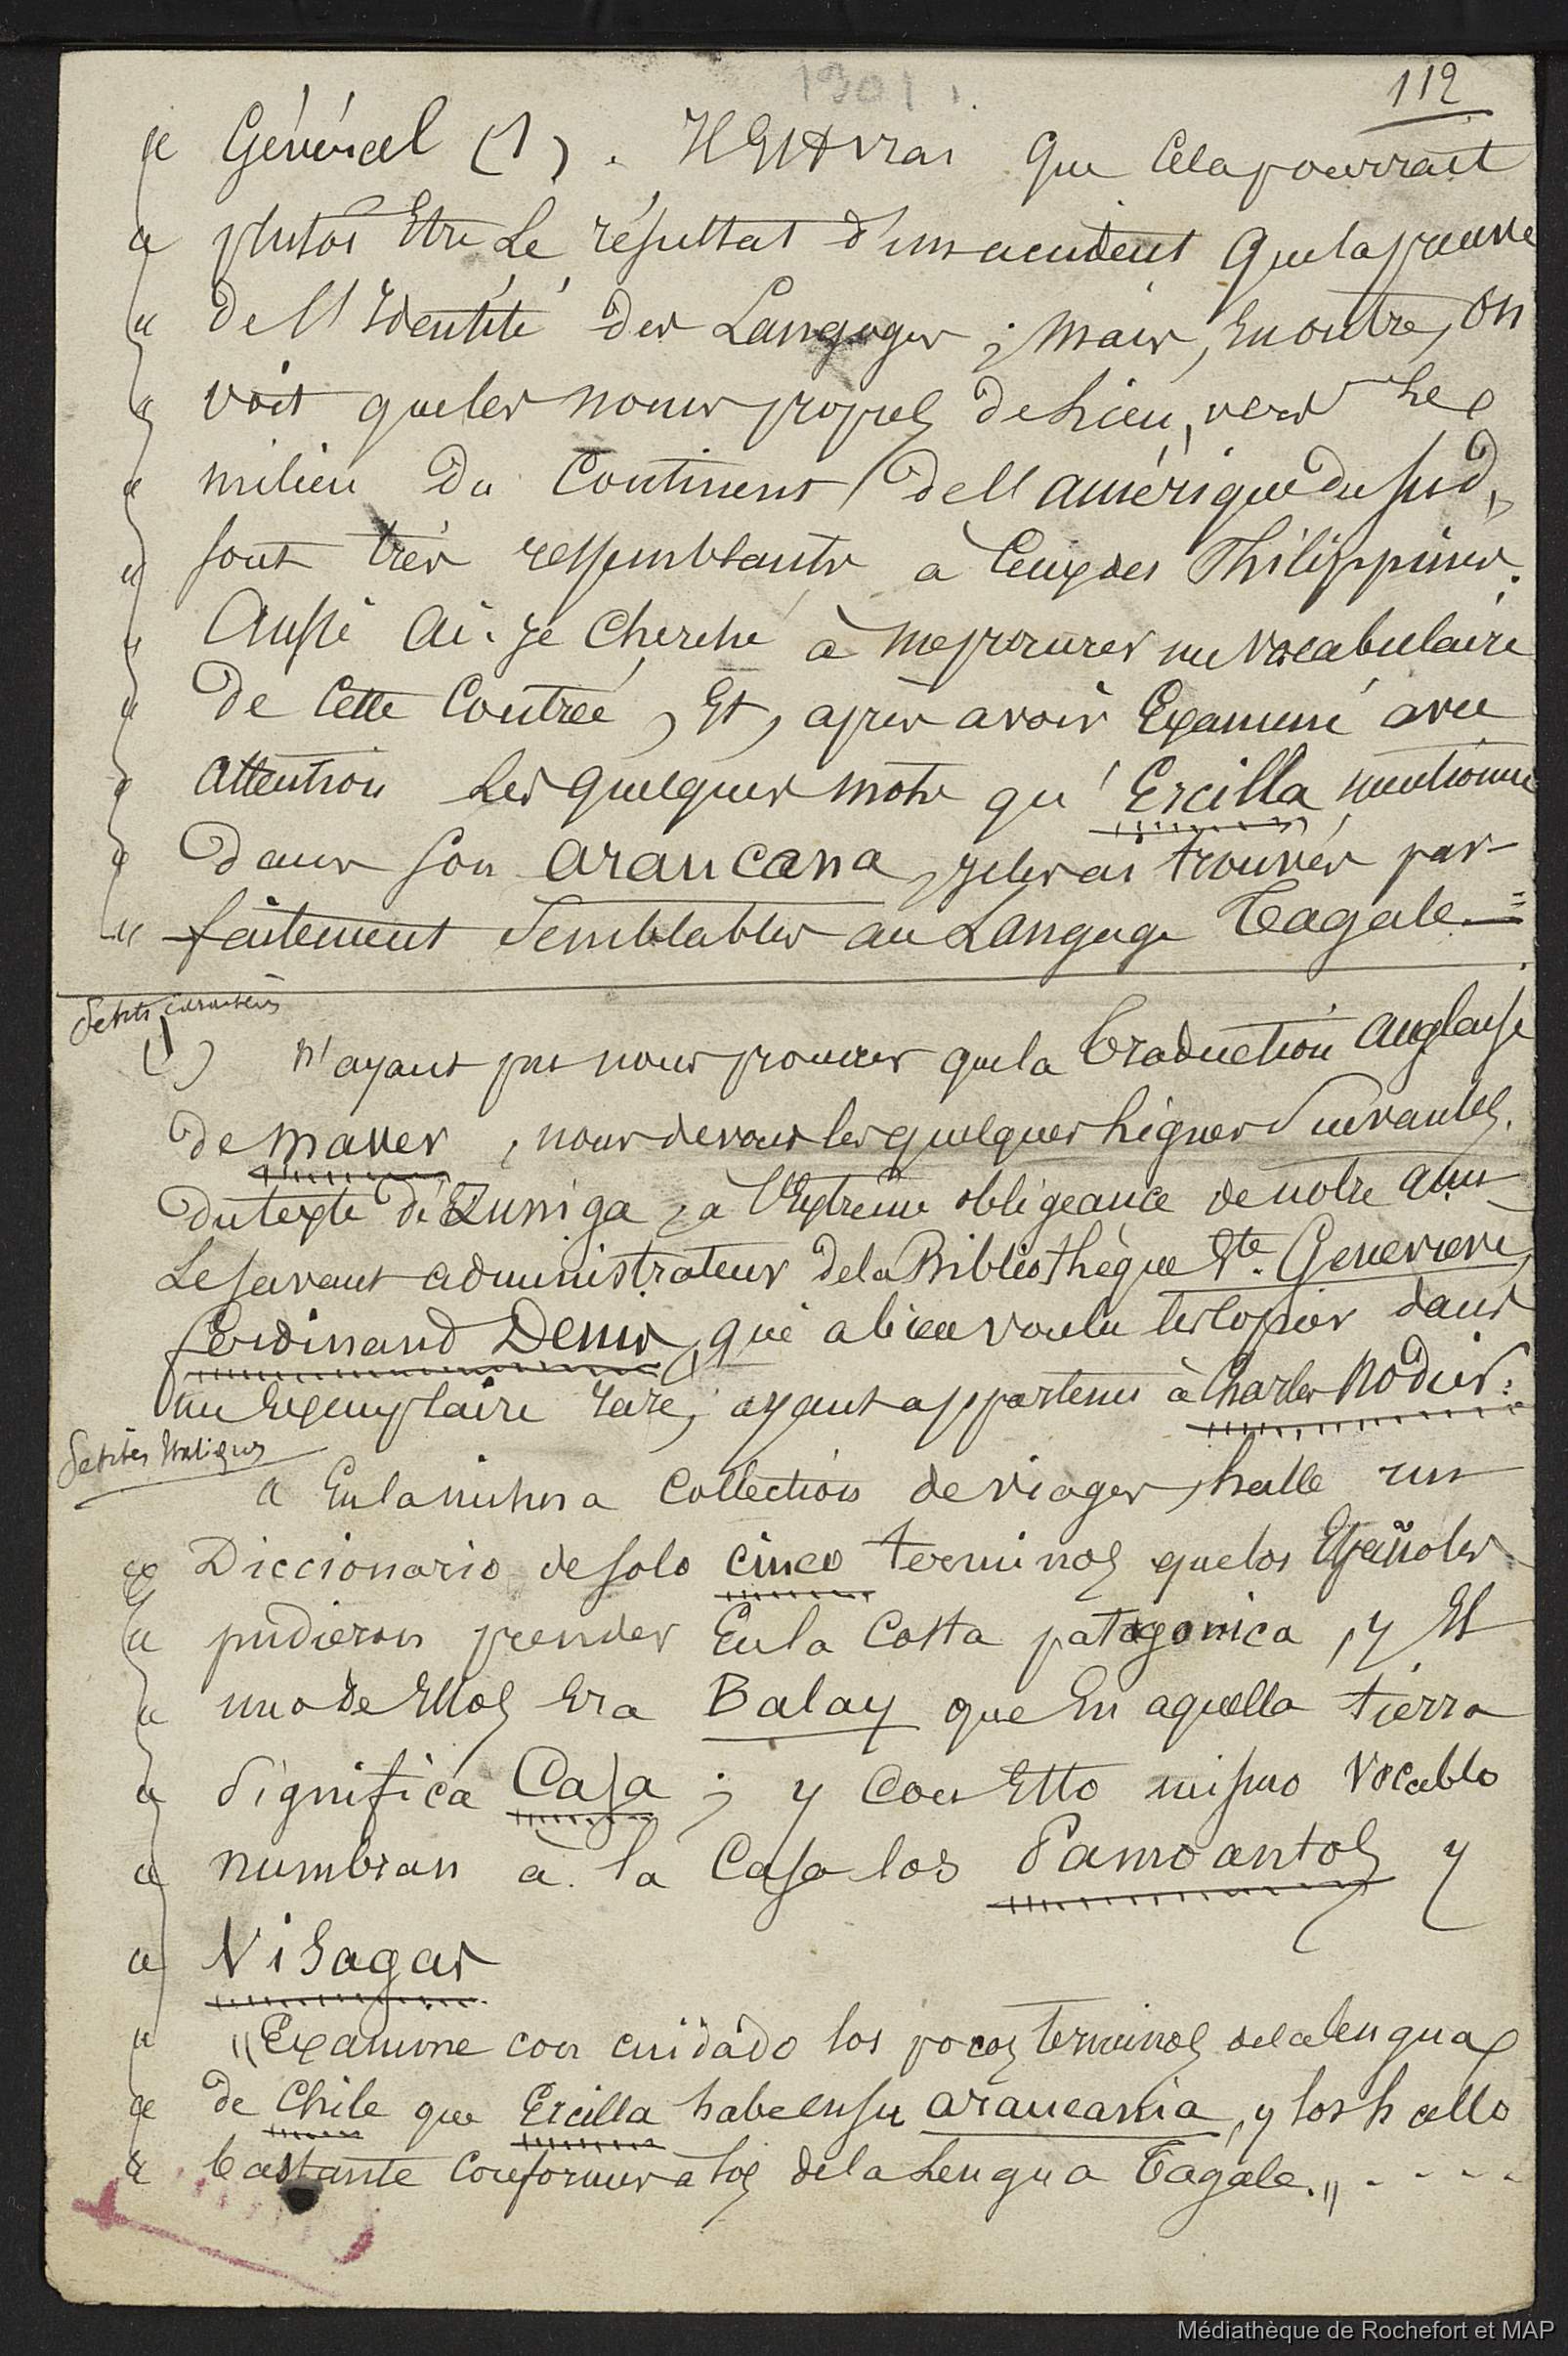 1901
112
« Général (1). Il Est vrai que Cela pourrait
« plutôt Etre Le résultat d'un accident que la preuve
« de l'Identité des Langages ; mais, En outre, on
« voit que les noms propres de Lieu, vers Le
« milieu du Continent de l'amérique du sud,
« sont très ressemblants à Ceux des Philippines.
« Aussi ai-je Cherché à me procurer un vocabulaire
« de Cette Contrée, Et, après avoir Examiné avec
« attention Les quelques mots qu'Ercilla mentionne
« dans son araucana, je les ai trouvés par-
« faitement Semblables au Langage Tagale. =
Petits caractères
(1) N'ayant pu nous procurer que la Traduction anglaise
de maver, nous devons les quelques Lignes Suivantes,
du texte de Zuniga, à l'Extrême obligeance de notre ami
Le savant administrateur de la Bibliothèque Ste. Geneviève,
ferdinand Denis, qui a bien voulu les Copier dans
un Exemplaire rare, ayant appartenu à Charles Nodier :
Petites Italiques
« En la misma Collection de viages, halle un
« Diccionario de solo cinco terminos que los Españoles
« pudieron prender En la Costa patagonica, y El
« uno de Ellos Era Balay que En aquella tierra
« significa Casa ; y Con Etto mismo Vocablo
« numbran à la Casa los Pampantos y
« Visagas
« "Examine con cuidàdo los pocos terminos de la lengua
« de Chile que Ercilla habe en su araucania, y los hallo
« bastante Conformes a los de la Lengua Tagale." - - - -
Médiathèque de Rochefort et MAP